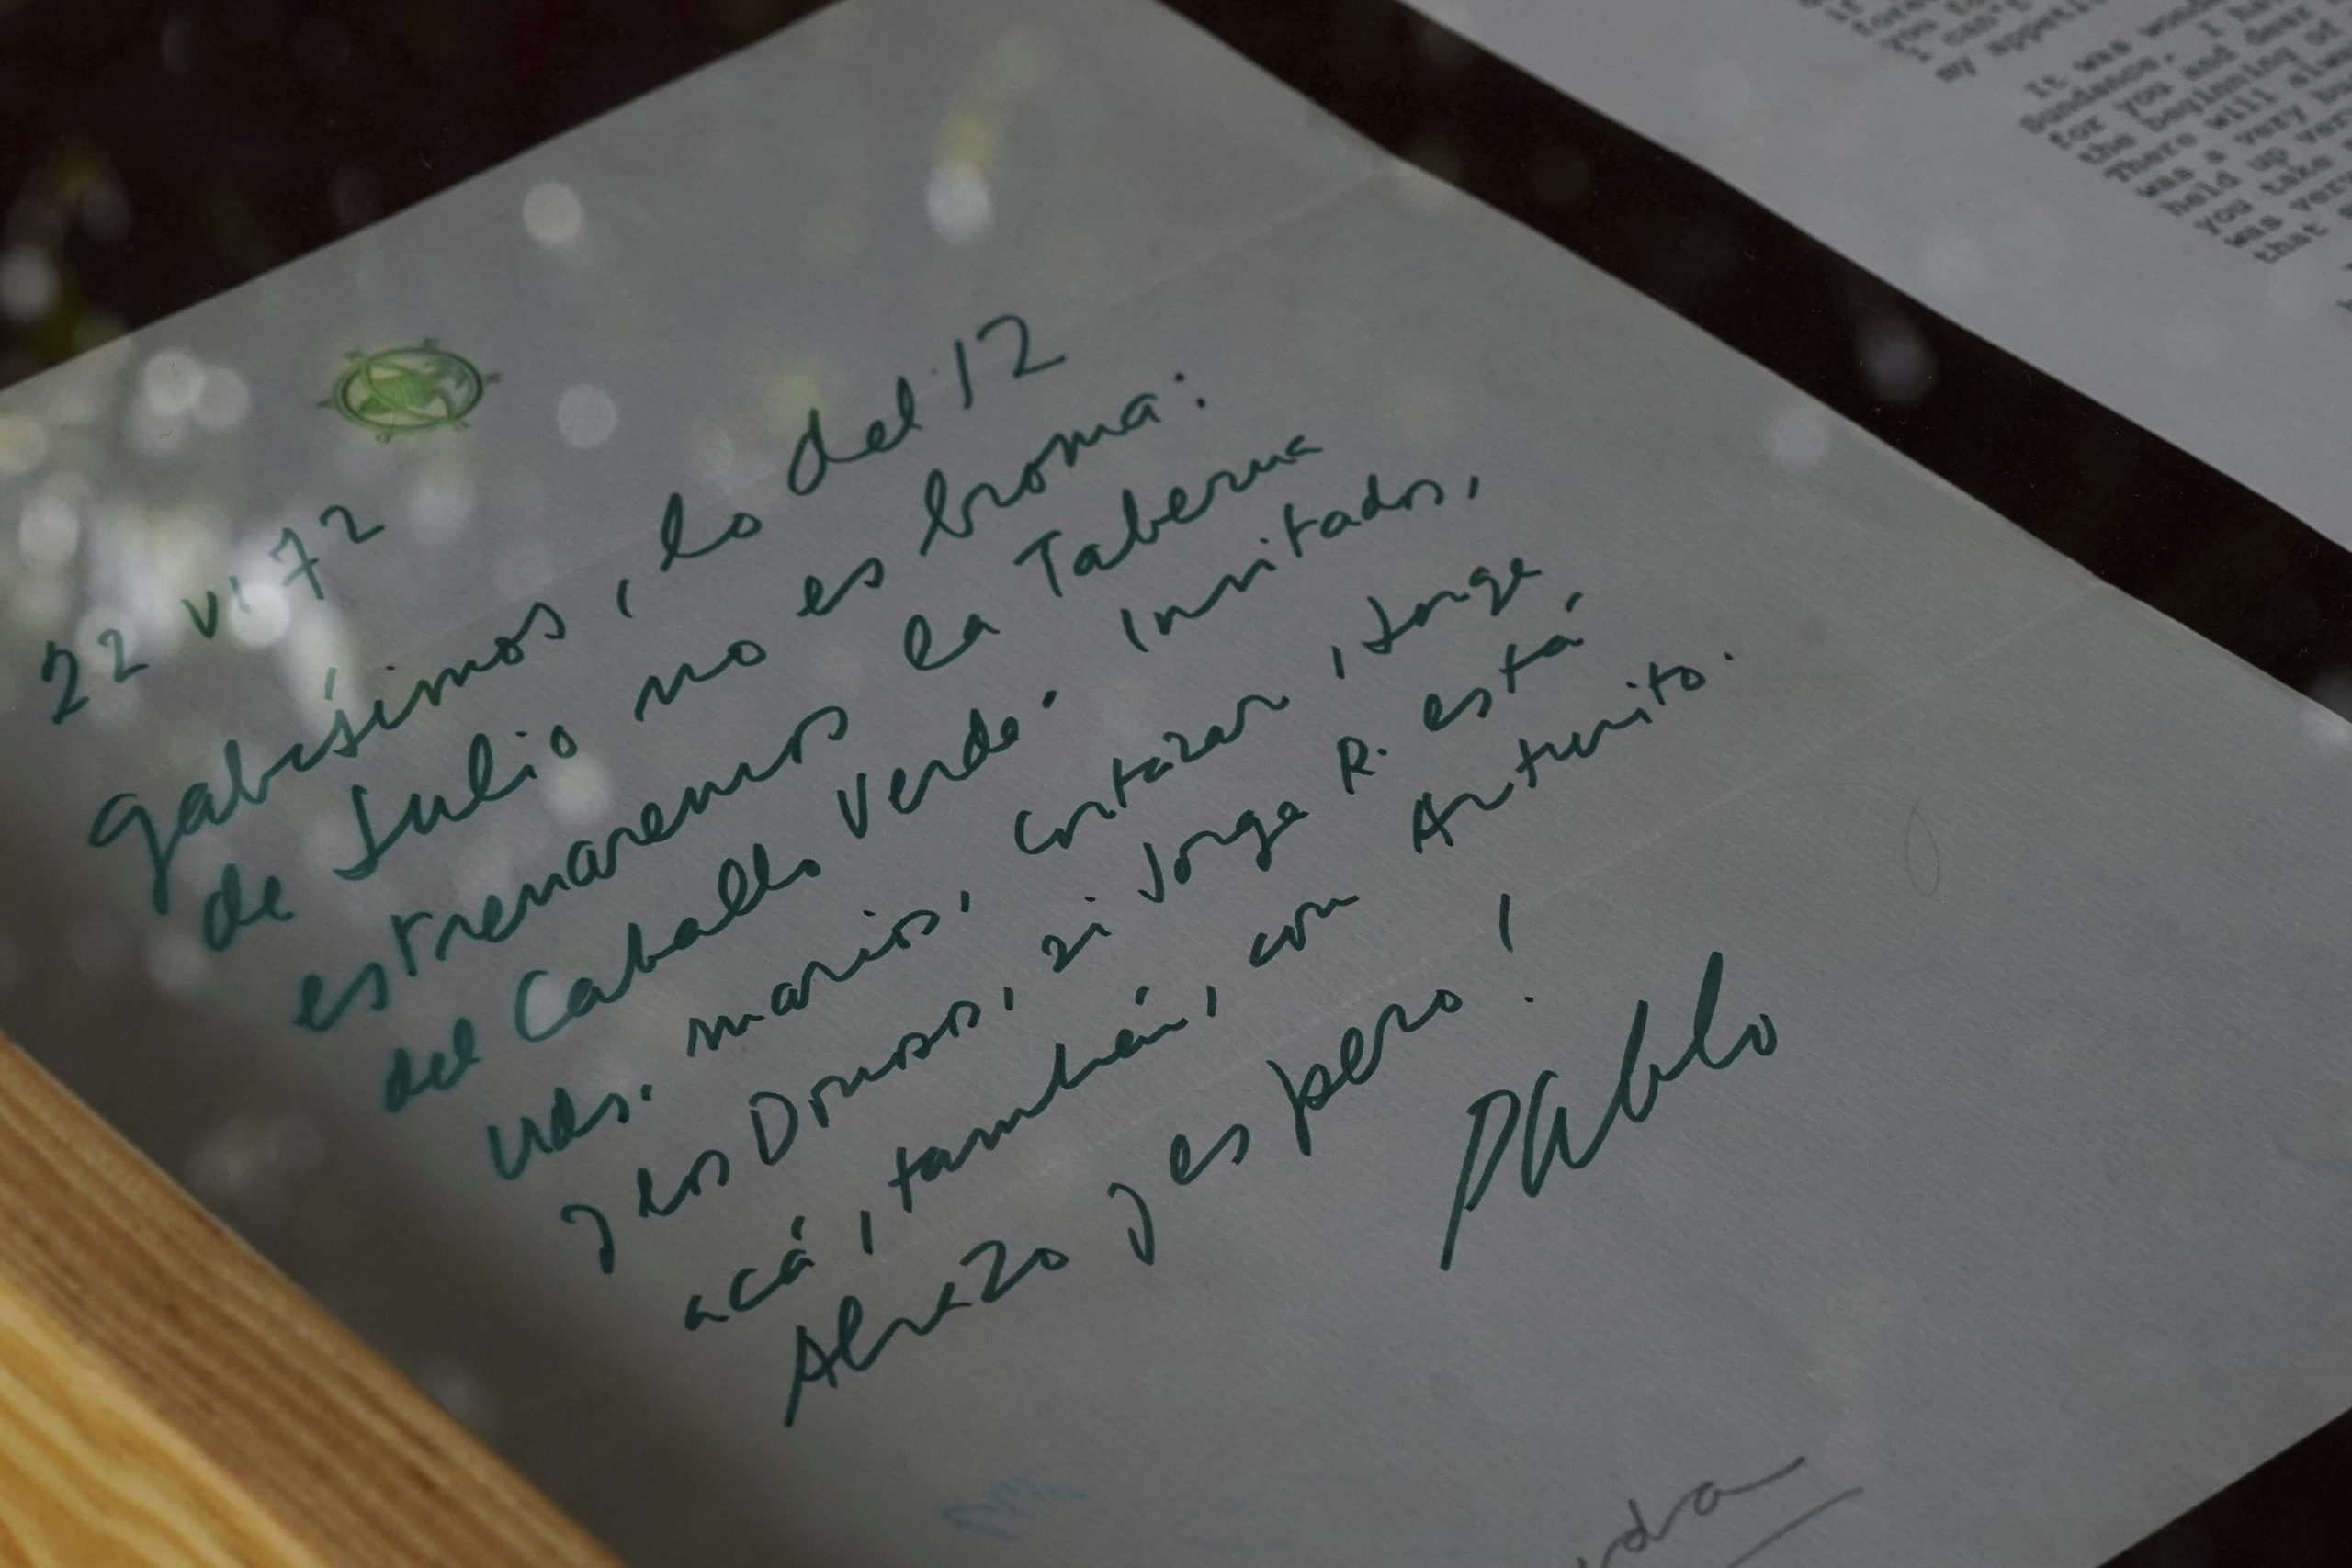 22 VI 72
gabísimos, lo del 12
de Julio no es broma:
estrenaremos la Taberna
del Caballo Verde. Invitados,
uds. marios, Cortazar, Jorge
y los Donoso, si Jorge R. está
acá, también, con Arturito.
Abrazo y espero!
Pablo
by appetit
It was won
Sundance, I ha
for you and dear
the beginning of
There will alw
was a very b
held up ver
you take
was very
that